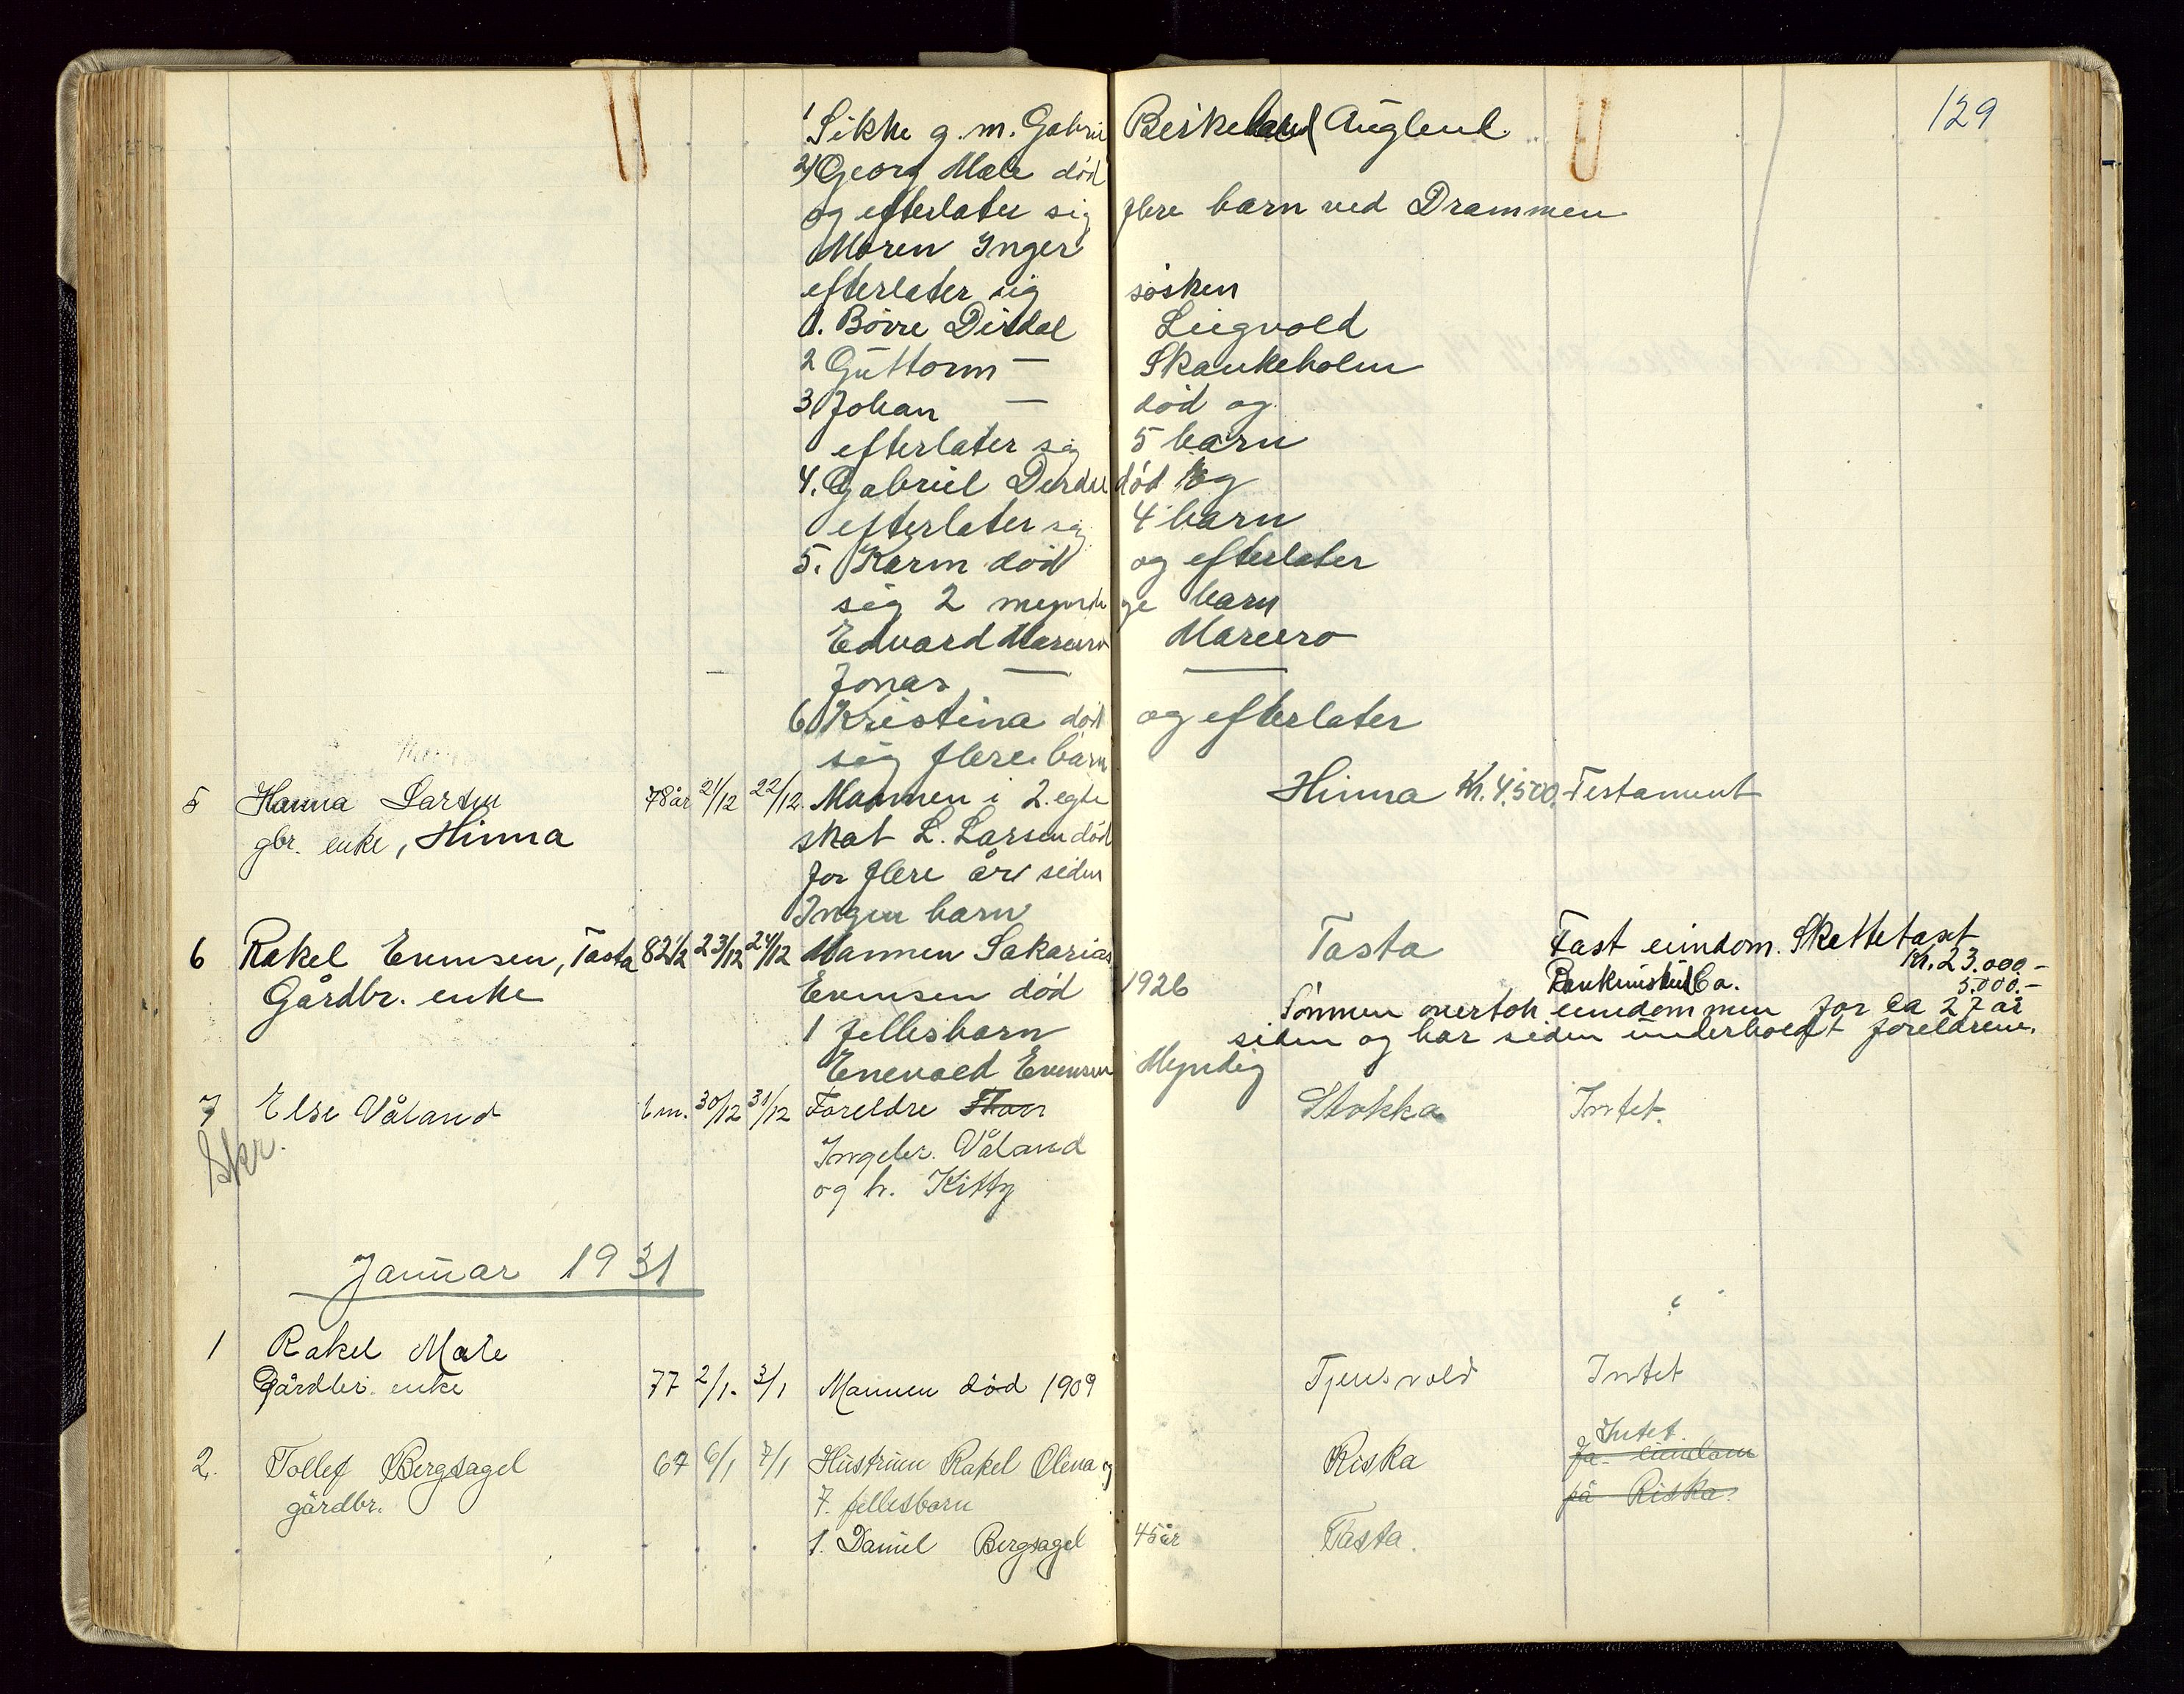 129
1 Sikke g. m. Gabriel Birkeland Auglend
2) Georg Male død
og efterlater sig flere barn ved Drammen
Moren Inger
efterlater sig søsken
1. Börre Dirdal Liegvold
2 Guttorm — Skankeholm
3 Johan — død og
efterlater sig 5 barn
4. Gabriel Dirdal død og
efterlater sig 4 barn
5. Karin død og efterlater
sig 2 myndige barn
Edvard Marcero Marcero
Jonas — —
6 Kristina død og efterlater
sig flere barn
5 Hanna Larsen 78 år 21/12 22/12 Mannen i 2. egte Hinna Kr. 4.500. Testament
gbr. enke, Hinna skat L. Larsen død
for flere år siden
Ingen barn
6 Rakel Evensen, Tasta 82 1/2 23/12 24/12 Mannen Sakarias Tasta Fast eiendom. Skattetakst
Kr. 23.000.-
Gårdbr. enke Evensen død 1926 Bankinskud Ca. 5.000.-
Sønnen overtok eiendommen for ca 27 år
1 fellesbarn siden og har siden underholdt foreldrene.
Enevald Evensen Myndig
7 Else Våland 6 m. 30/12 31/12 Foreldre Stokka Intet.
Skr. Ingebr. Våland
og h. Kitty
Januar 1931
1 Rakel Male
Gårdbr. enke 77 2/1. 3/1 Mannen død 1909 Tjensvold Intet
Intet.
2. Tollef Bergsagel 67 6/1 7/1 Hustruen Rakel Olina og Riska Ja. eiendom
gårdbr. 7. fellesbarn på Riska.
1. Daniel Bergsagel 45 år Tasta.